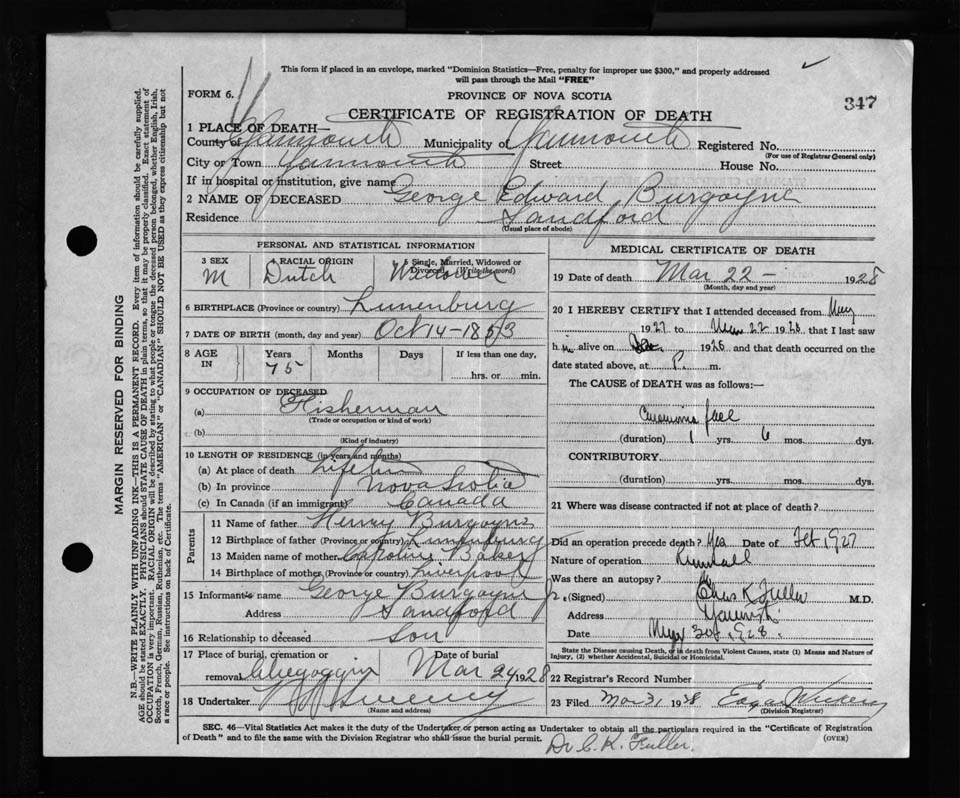 This form if placed in an envelope, marked "Dominion Statistics—Free, penalty for improper use $300," and properly addressed
will pass through the Mail "FREE"
FORM 6.
PROVINCE OF NOVA SCOTIA
347
CERTIFICATE OF REGISTRATION OF DEATH
1 PLACE OF DEATH—
County of Yarmouth Municipality of Yarmouth Registered No.
(For use of Registrar General only)
City or Town Yarmouth Street House No.
If in hospital or institution, give name
2 NAME OF DECEASED George Edward Burgoyne
Residence Sandford
(Usual place of abode)
PERSONAL AND STATISTICAL INFORMATION
3 SEX 4 RACIAL ORIGIN 5 Single, Married, Widowed or Divorced (Write the word)
M Dutch Widower
6 BIRTHPLACE (Province or country) Lunenburg
7 DATE OF BIRTH (month, day and year) Oct 14-1853
8 AGE IN Years Months Days If less than one day,
75 hrs. or min.
9 OCCUPATION OF DECEASED
(a) Fisherman
(Trade or occupation or kind of work)
(b)
(Kind of industry)
10 LENGTH OF RESIDENCE (in years and months)
(a) At place of death
(b) In province Nova Scotia
(c) In Canada (if an immigrant) Canada
Parents
11 Name of father Henry Burgoyne
12 Birthplace of father (Province or country) Lunenburg
13 Maiden name of mother Caroline Baker
14 Birthplace of mother (Province or country) Liverpool
15 Informant's name George Burgoyne Jr.
Address Sandford
16 Relationship to deceased Son
17 Place of burial, cremation or removal Date of burial
Chegoggin Mar 24 1928
18 Undertaker Sweeny
(Name and address)
MEDICAL CERTIFICATE OF DEATH
19 Date of death Mar 22 - 1928
(Month, day and year)
20 I HEREBY CERTIFY that I attended deceased from
1927 to 22 1928 that I last saw
h im alive on 1928 and that death occurred on the
date stated above, at P. m.
The CAUSE of DEATH was as follows:—
Carcinoma face
(duration) 1 yrs. 6 mos. dys.
CONTRIBUTORY
(duration) yrs. mos. dys.
21 Where was disease contracted if not at place of death?
Did an operation precede death? Yes Date of Feb 1927
Nature of operation
Was there an autopsy? No
(Signed) Chas K Fuller M.D.
Address Yarmth
Date 1928.
State the Disease Causing Death, or in death from Violent Causes, state (1) Means and Nature of
Injury, (2) whether Accidental, Suicidal or Homicidal.
22 Registrar's Record Number
23 Filed Mar 31 1928
(Division Registrar)
SEC. 46—Vital Statistics Act makes it the duty of the Undertaker or person acting as Undertaker to obtain all the particulars required in the "Certificate of Registration
of Death" and to file the same with the Division Registrar who shall issue the burial permit. (OVER)
Dr C. K. Fuller.
MARGIN RESERVED FOR BINDING
N.B.—WRITE PLAINLY WITH UNFADING INK—THIS IS A PERMANENT RECORD. Every item of information should be carefully supplied.
AGE should be stated EXACTLY. PHYSICIANS should STATE CAUSE OF DEATH in plain terms, so that it may be properly classified. Exact statement of
OCCUPATION is very important. RACIAL ORIGIN will be described by stating to what people or tongue the deceased person belonged, whether English, Irish,
Scotch, French, German, Russian, Ruthenian, etc. The terms "AMERICAN" or "CANADIAN" SHOULD NOT BE USED as they express citizenship but not
a race or people. See instructions on back of Certificate.